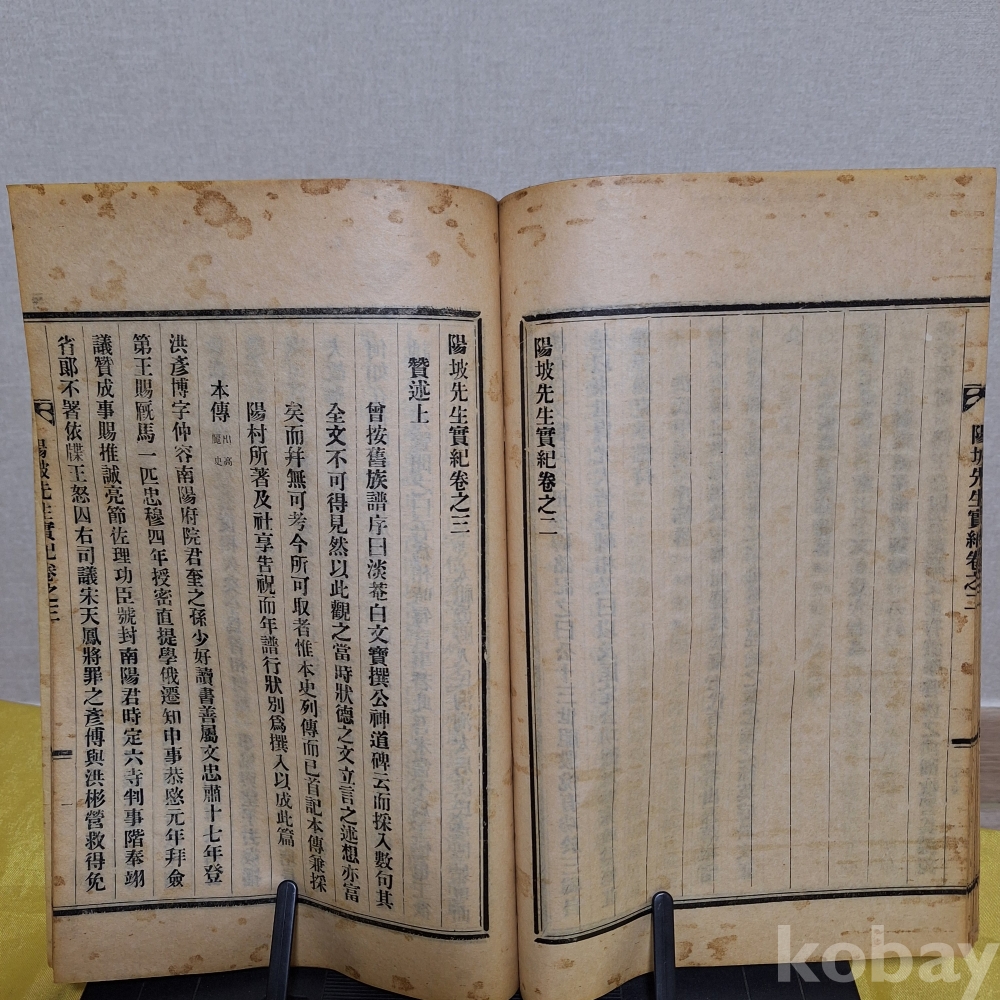 陽坡先生實紀卷之二
陽坡先生實紀卷之二
陽坡先生實紀卷之三
贊述上
曾按舊族譜序曰淡菴白文寶撰公神道碑云而採入數句其
全文不可得見然以此觀之當時狀德之文立言之述想亦富
矣而幷無可考今所可取者惟本史列傳而已首記本傳兼採
陽村所著及社享告祝而年譜行狀別爲撰入以成此篇
本傳 出高麗史
洪彥博字仲容南陽府院君奎之孫少好讀書善屬文忠肅十七年登
第王賜厩馬一匹忠穆四年授密直提學俄遷知申事恭愍元年拜僉
議贊成事賜推誠亮節佐理功臣號封南陽君時定六寺判事階奉翊
省郞不署依牒王怒囚右司議宋天鳳將罪之彥傅與洪彬營救得免
陽坡先生實紀卷之三
一
kobay